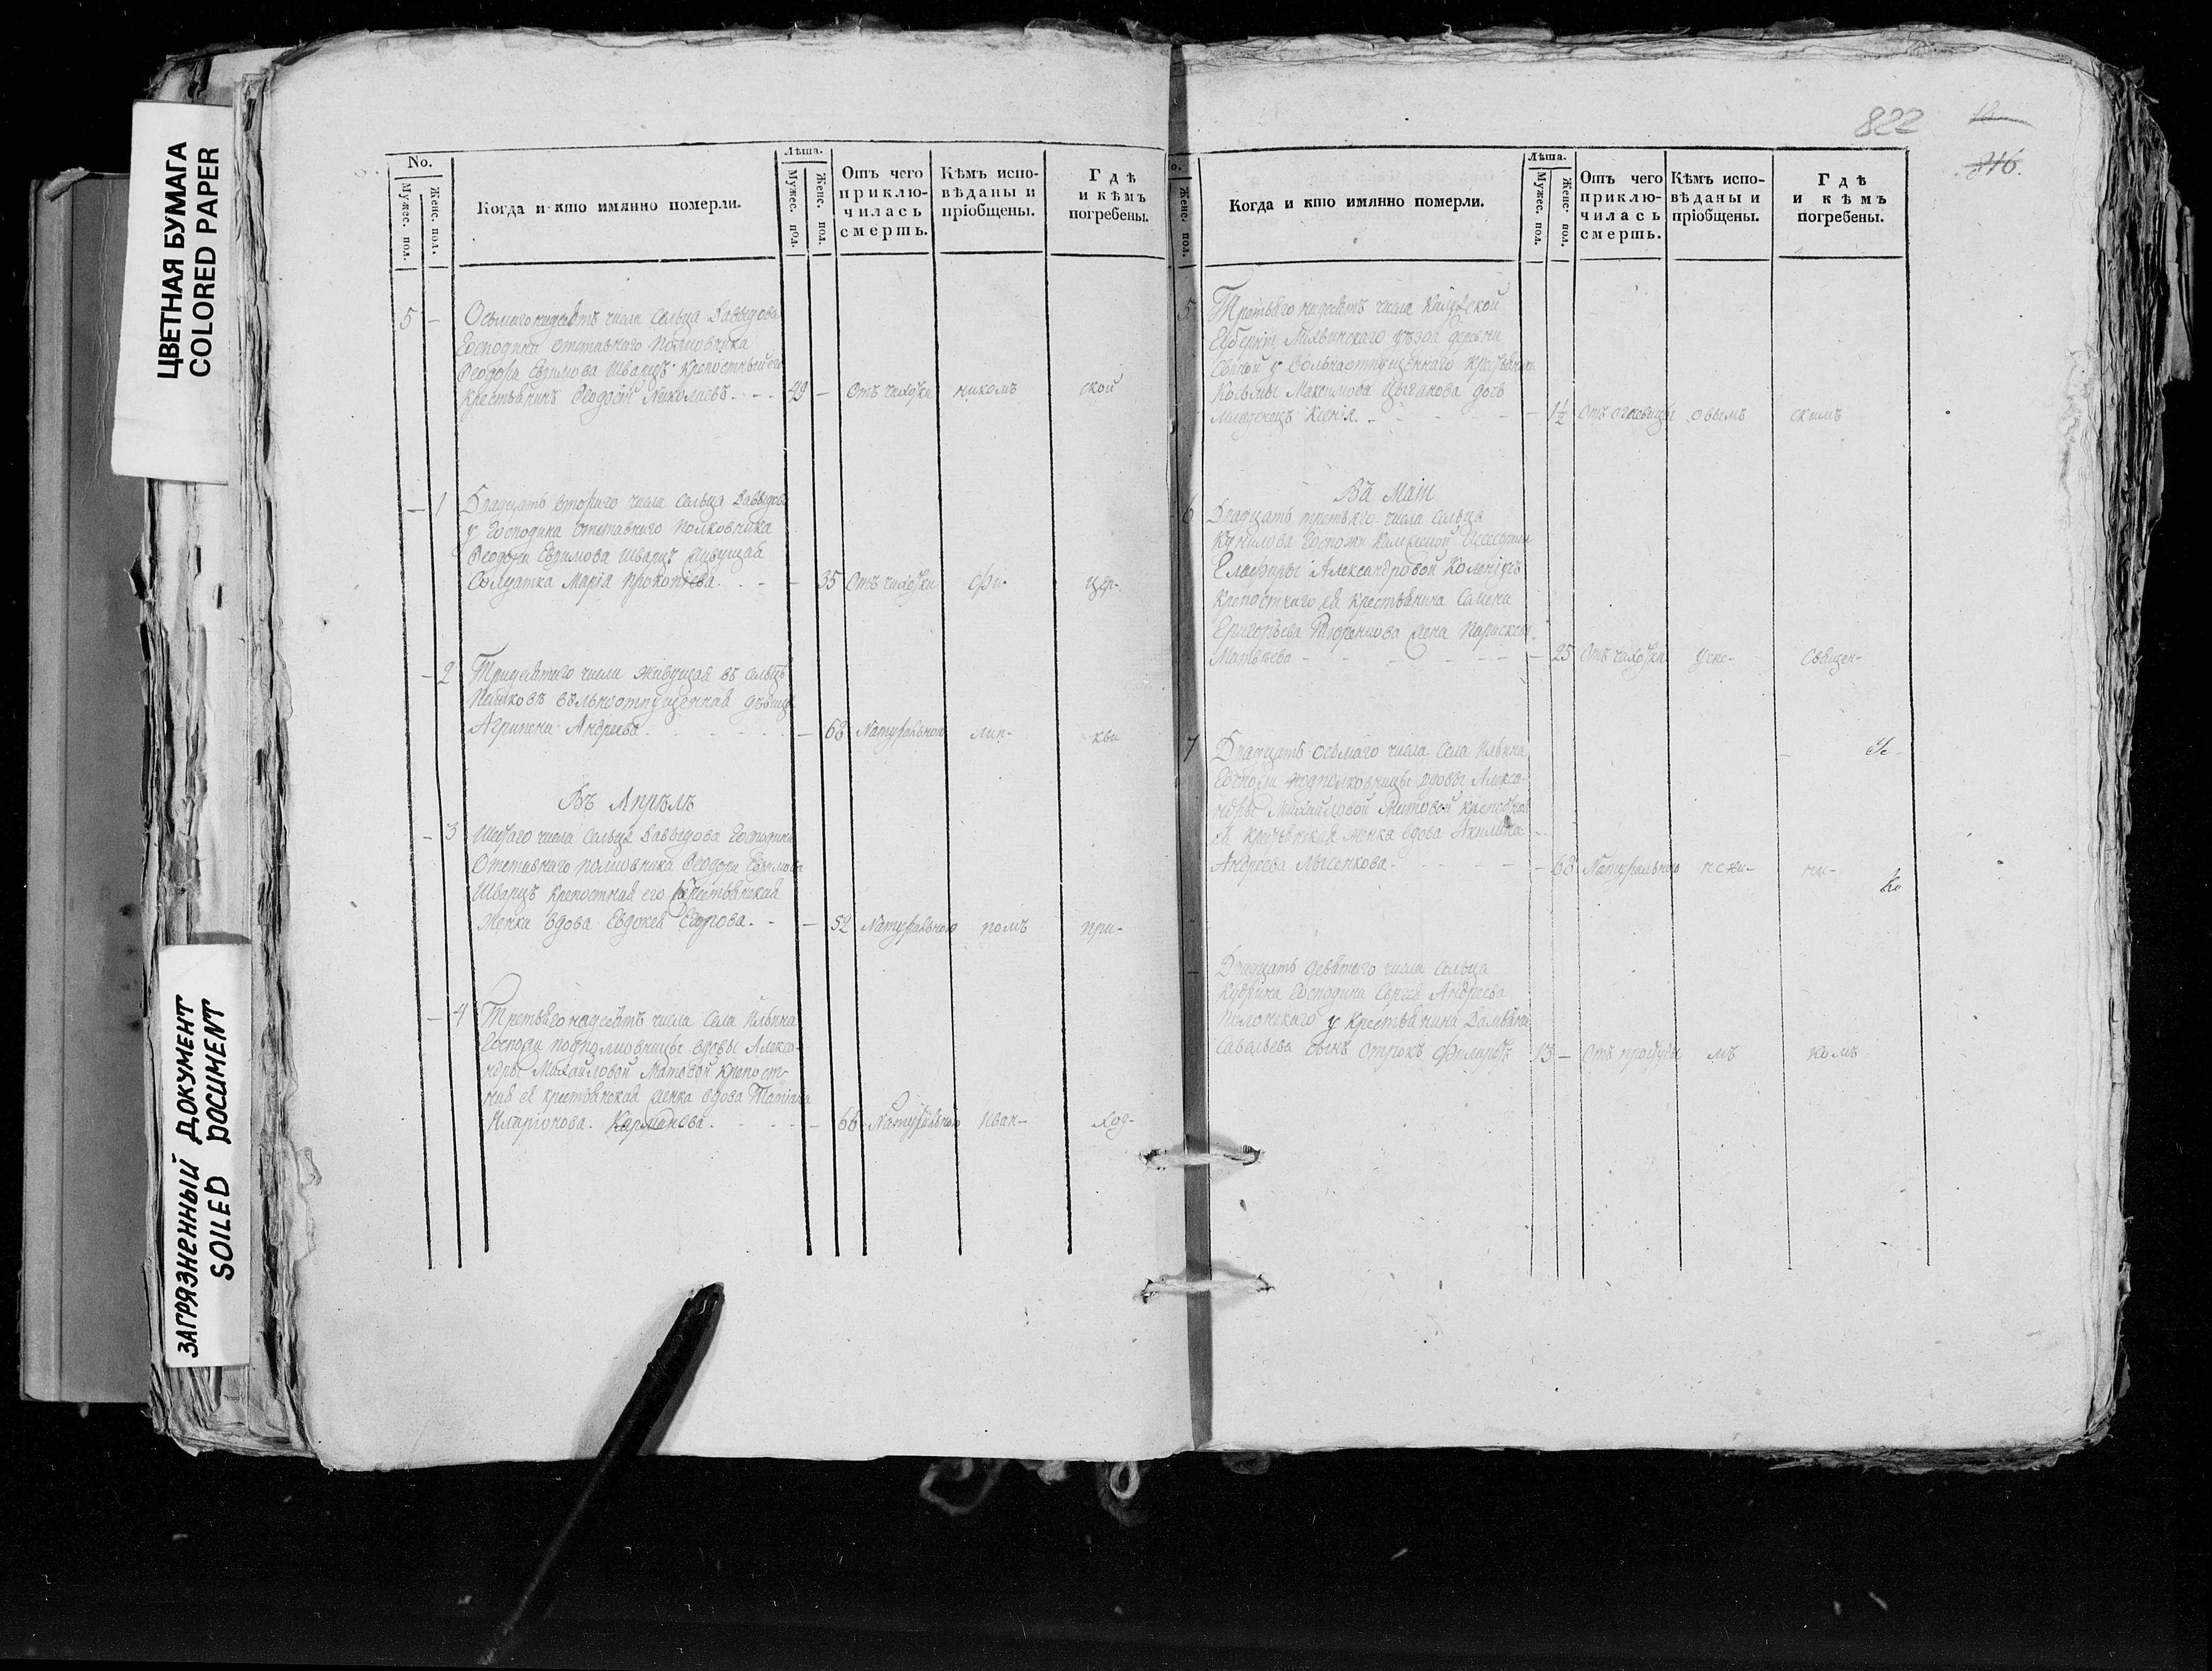 ЦВЕТНАЯ БУМАГА
COLORED PAPER
ЗАГРЯЗНЕННЫЙ ДОКУМЕНТ
SOILED DOCUMENT
No.
Мужес. пол.
Женс. пол.
Когда и кто имянно померли.
Лѣта.
Мужес. пол.
Женс. пол.
Отъ чего приклю-
чилась
смерть.
Кѣмъ испо-
вѣданы и
пріобщены.
Гдѣ
и кѣмъ
погребены.
5 - Осьмагонадесять числа Сельца Давыдова
Господина отставнаго Полковника
Ѳеодора Ефимова Шварцъ крепостный его
крестьянинъ Ѳеодосій Николаевъ 49 - Отъ чахотки никомъ ской
- 1 Двадцать втораго числа Сельца Давыдова
у Господина отставнаго полковника
Ѳеодора Ефимова Шварцъ живущая
Солдатка Марія Прокопіева - 35 Отъ чахотки фи- цер-
- 2 Тридесятаго числа живущая въ сельцѣ
вольноотпущенная дѣвица
Агрипена Андреева - 68 Натуральной лип- кви
Въ Апрѣлѣ
- 3 Шестаго числа Сельца Давыдова Господина
Отставнаго полковника Ѳеодора Ефимова
Шварцъ крепостная его крестьянская
женка вдова Евдокея Егорова - 52 Натуральною помъ при-
- 4 Третьягонадесять числа Села Ильина
Госпожи подполковницы вдовы Алекса-
ндры Михайловой крепост-
ная ея крестьянская женка вдова Татіана
Иларіонова Карманова - 66 Натуральною Иван- ход-
822
816.
Женс. пол.
Когда и кто имянно померли.
Лѣта.
Мужес. пол.
Женс. пол.
Отъ чего
приклю-
чилась
смерть.
Кѣмъ испо-
вѣданы и
пріобщены.
Гдѣ
и кѣмъ
погребены.
5 Третьягонадесять числа Калужской
Губерніи Лихвинскаго уѣзда деревни
у вольноотпущеннаго крестьянина
Козьмы Максимова Цыганова дочь
младенецъ Ксенія - 1½ Отъ огневицы овымъ скимъ
Въ Маіи
6 Двадцать третьяго числа Сельца
Госпожи
Александровой
крепостнаго ея крестьянина Самена
Григорьева жена Параскева
Матвѣева - 25 Отъ чахотки Успе- Священ-
7 Двадцать осьмаго числа Села Ильина
Госпожи подполковницы вдовы Алекса-
ндры Михайловой крепостная
ея крестьянская женка вдова Акилина
Андреева Лысенкова - 68 Натуральною нски- ни-
Двадцать девятаго числа Сельца
Кудрина Господина Сергея Андреева
Полонскаго у крестьянина
Савельева сынъ отрокъ Филаретъ 13 - Отъ простуды мъ комъ